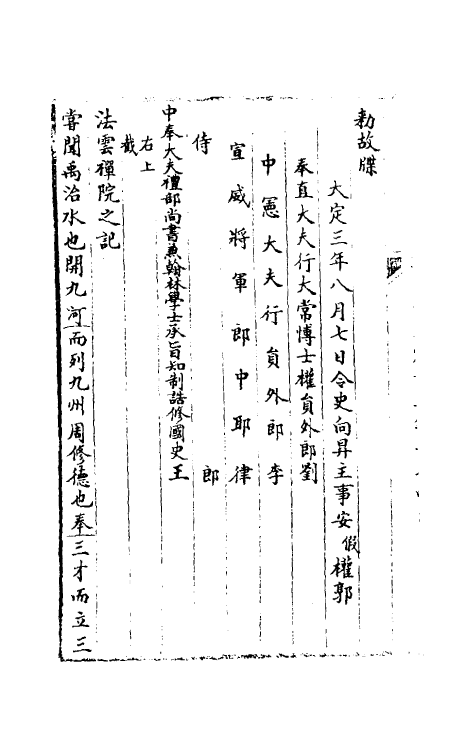 勑故牒
大定三年八月七日令史向昇主事安假權郭
奉直大夫行大常博士權貟外郎劉
中憲大夫行貟外郎李
宣威將軍郎中耶律
侍郎
中奉大夫禮部尚書兼翰林學士承旨知制誥修國史王
右上截
法雲禪院之記
嘗聞禹治水也開九河而列九州周修德也奉三才而立三